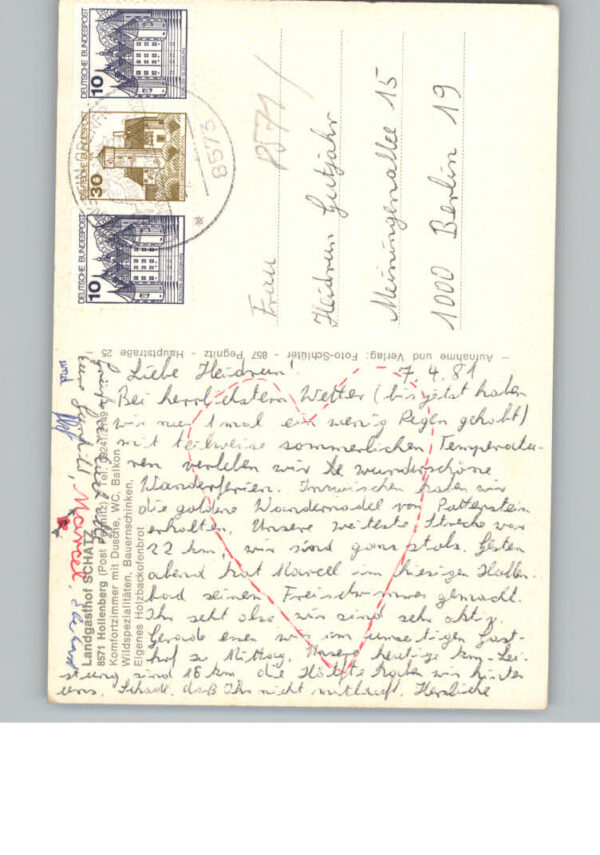 DEUTSCHE BUNDESPOST
10
DEUTSCHE BUNDESPOST
30
DEUTSCHE BUNDESPOST
10
8573
8571/
Frau
Heidrun Gutjahr
Meiningenallee 15
1000 Berlin 19
Aufnahme und Verlag: Foto-Schlüter - 857 Pegnitz - Hauptstraße 25
Landgasthof SCHATZ
8571 Hollenberg (Post Pegnitz) Tel.
Komfortzimmer mit Dusche, WC, Balkon
Wildspezialitäten, Bauernschinken,
Eigenes Holzbackofenbrot
7.4.81
Liebe Heidrun!
Bei herrlichstem Wetter (bis jetzt haben
wir nur 1 mal ein wenig Regen gehabt)
mit teilweise sommerlichen Temperatu-
ren verleben wir wunderschöne
Wanderferien. Inzwischen haben wir
die goldene Wandernadel von Pottenstein
erhalten. Unsere weiteste Strecke war
22 km, wir sind ganz stolz. Gestern
abend hat Marcell im hiesigen Hallen-
bad seinen Freischwimmer gemacht.
Ihr seht also, wir sind sehr aktiv.
Gerade essen wir im Gast-
hof zu Mittag. Unsere heutige km-Lei-
stung sind 15 km, die Hälfte haben wir hinter
uns. Schade, daß Ihr nicht mitlauft. Herzliche
Grüße
und
Marcel,